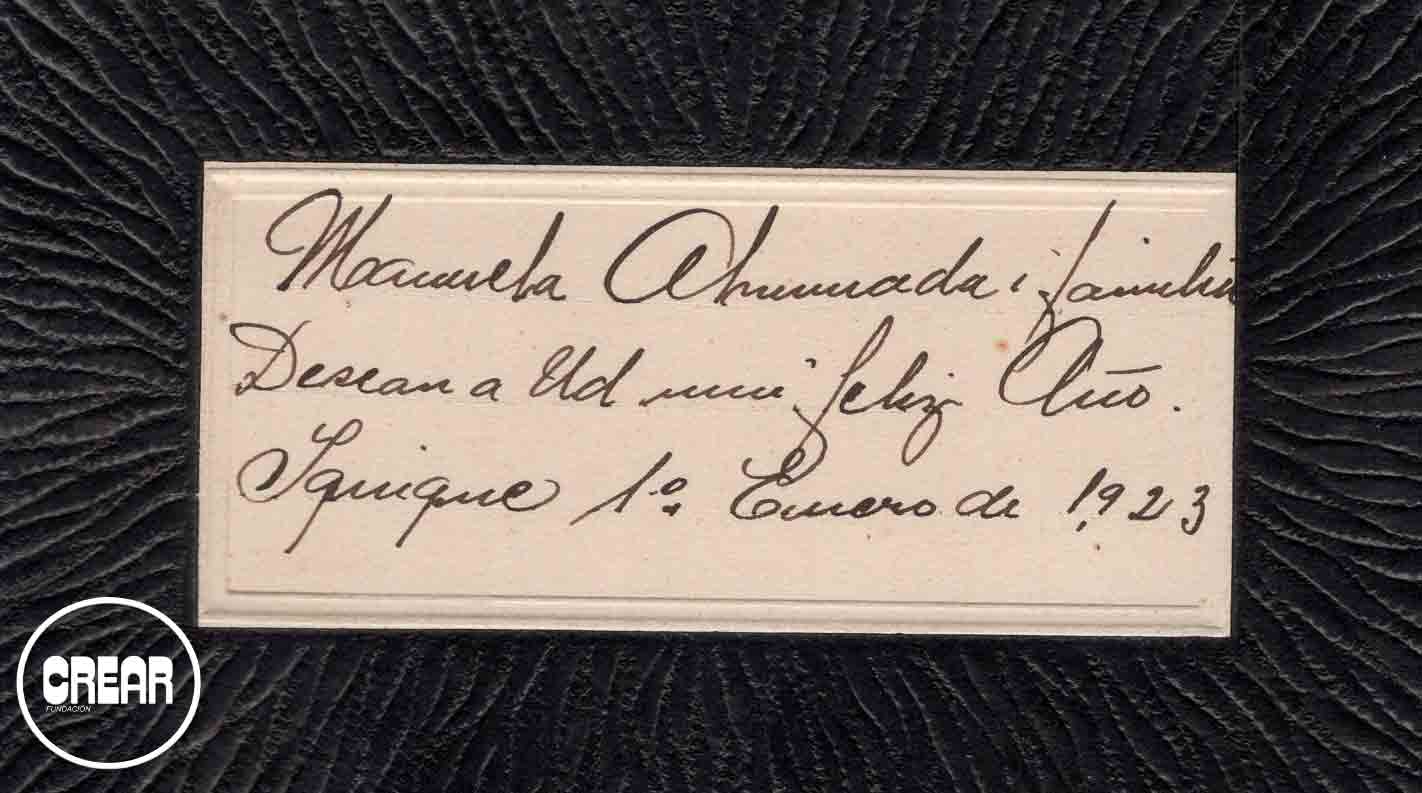 Manuela Ahumada i familia
Desean a Ud un feliz Año.
Iquique 1º Enero de 1923
CREAR
FUNDACIÓN